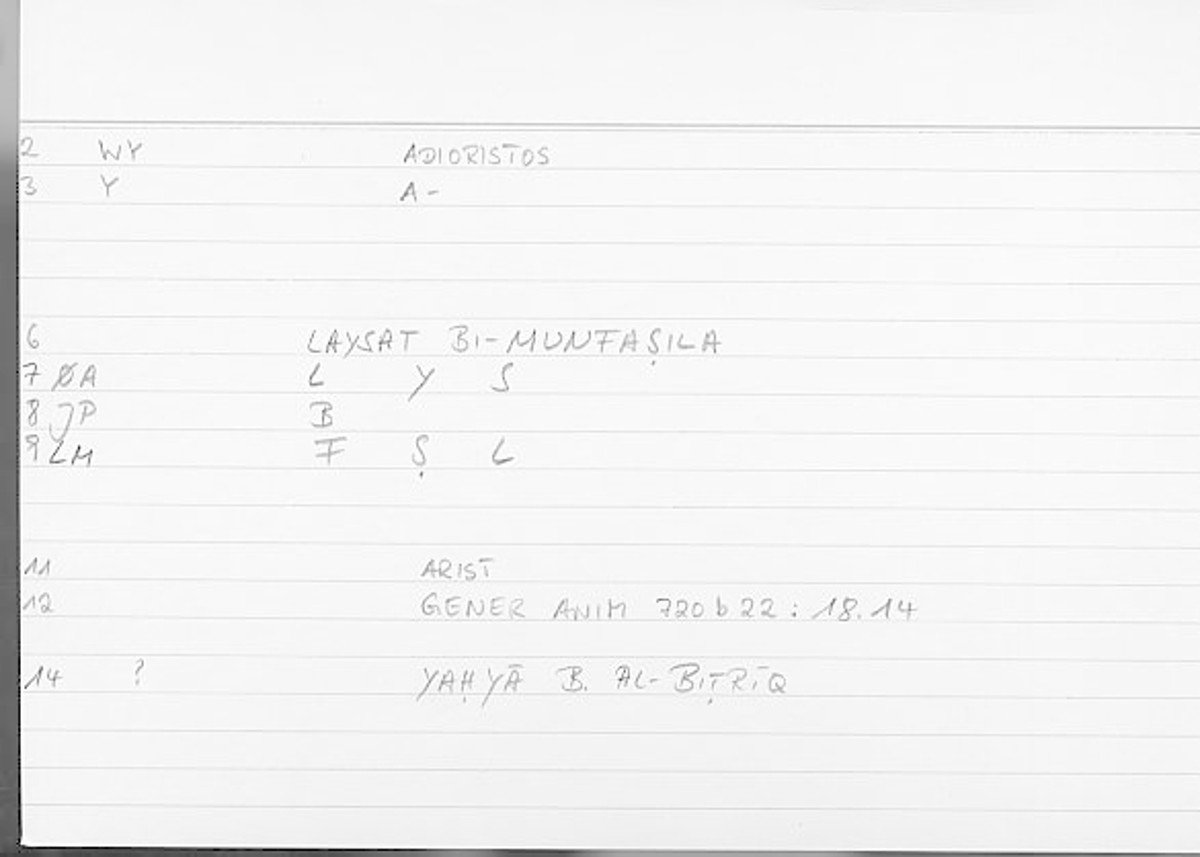 2 WY ADIORISTOS
3 Y A-
6 LAYSAT BI-MUNFAṢILA
7 ØA L Y S
8 JP B
9 LM F Ṣ L
11 ARIST
12 GENER ANIM 720 b 22 : 18.14
14 ? YAḤYĀ B. AL-BIṬRĪQ